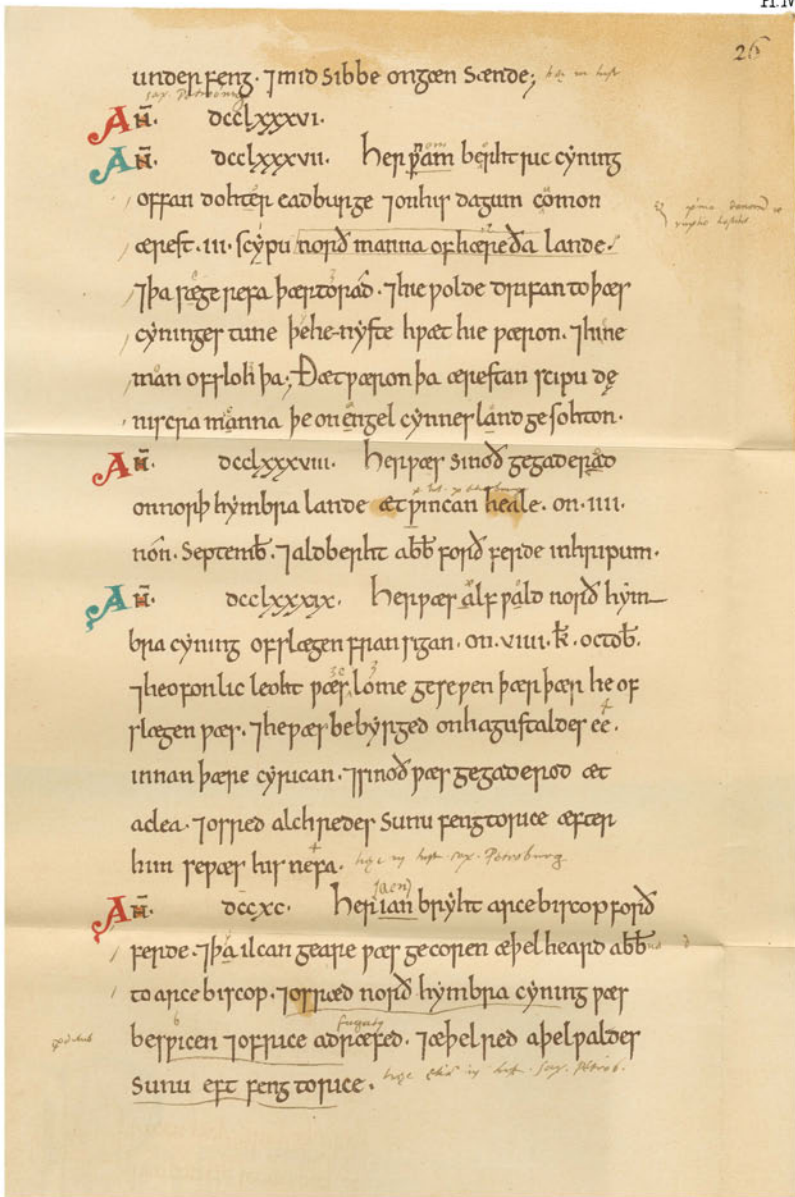 26
under feng. ⁊ mid sibbe ongæn sænde;
Añ. dcclxxxvi.
Añ. dcclxxxvii. Her nam berhtric cyning
offan dohter eadburge ⁊ on his dagum comon
ærest. iii. scypu norð manna of hæreða lande.
⁊ þa se gerefa þærto rad. ⁊ hie wolde drifan to þær
cyninges tune þe he nyste hwæt hie wæron. ⁊ hine
man ofsloh þa; Ðæt wæron þa ærestan scipu de
niscra manna þe on engel cynnes land gesohton.
Añ. dcclxxxviii. Her wæs sinoð gegaderad
on norþ hymbra lande æt wincan heale. on. iiii.
noñ. Septemb̃. ⁊ aldberht abb̃ forð ferde in hripum.
Añ. dcclxxxix. Her wæs alfwald norð hym
bra cyning ofslægen fran sigan. on. viiii. k̃. octob̃.
⁊ heofonlic leoht wæs lome gesewen þær þær he of
slægen wæs. ⁊ he wæs bebyrged on hagustaldes ee.
innan þære cyrican. ⁊ sinoð wæs gegaderod æt
aclea. ⁊ osred alchredes sunu feng to rice æfter
him se wæs his nefa. hæc in hist. sax. Petroburg.
Añ. dccxc. Her ianbryht arcebiscop forð
(aen)
ferde. ⁊ þa ilcan geare wæs gecoren æþelheard abb̃
to arce biscop. ⁊ osræd norð hymbra cyning wæs
beswicen ⁊ of rice adræfed. ⁊ æþelred aþelwaldes
sunu eft feng to rice.